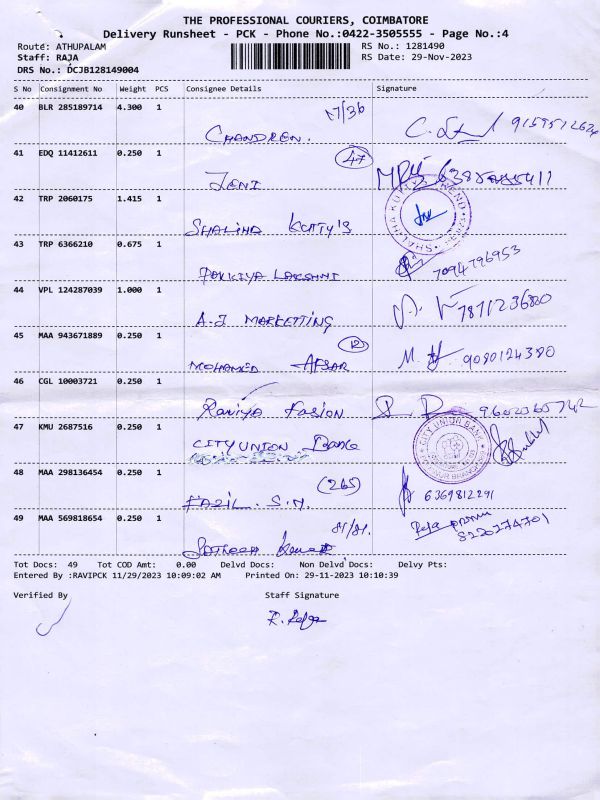 THE PROFESSIONAL COURIERS, COIMBATORE
Delivery Runsheet - PCK - Phone No.:0422-3505555 - Page No.:4
Route: ATHUPALAM RS No.: 1281490
Staff: RAJA RS Date: 29-Nov-2023
DRS No.: DCJB128149004
S No Consignment No Weight PCS Consignee Details Signature
40 BLR 285189714 4.300 1 17/36
CHANDREN.
41 EDQ 11412611 0.250 1 47
ZENI
42 TRP 2060175 1.415 1
SHALIHA KUTTY'S
43 TRP 6366210 0.675 1
PAKKIYA LAKSHMI 7094796953
44 VPL 124287039 1.000 1
A-J MARKETTING 7871236800
45 MAA 943671889 0.250 1 12
MOHAMED AFSAR 9080124380
46 CGL 10003721 0.250 1
Raniya Fasion
47 KMU 2687516 0.250 1 CITY UNION BANK
CITY UNION Bank
48 MAA 298136454 0.250 1 (265)
FAZIL . S.M. 6369812291
49 MAA 569818654 0.250 1 81/81.
Satheesh Kumar 8220774701
Tot Docs: 49 Tot COD Amt: 0.00 Delvd Docs: Non Delvd Docs: Delvy Pts:
Entered By :RAVIPCK 11/29/2023 10:09:02 AM Printed On: 29-11-2023 10:10:39
Verified By Staff Signature
R. Raja